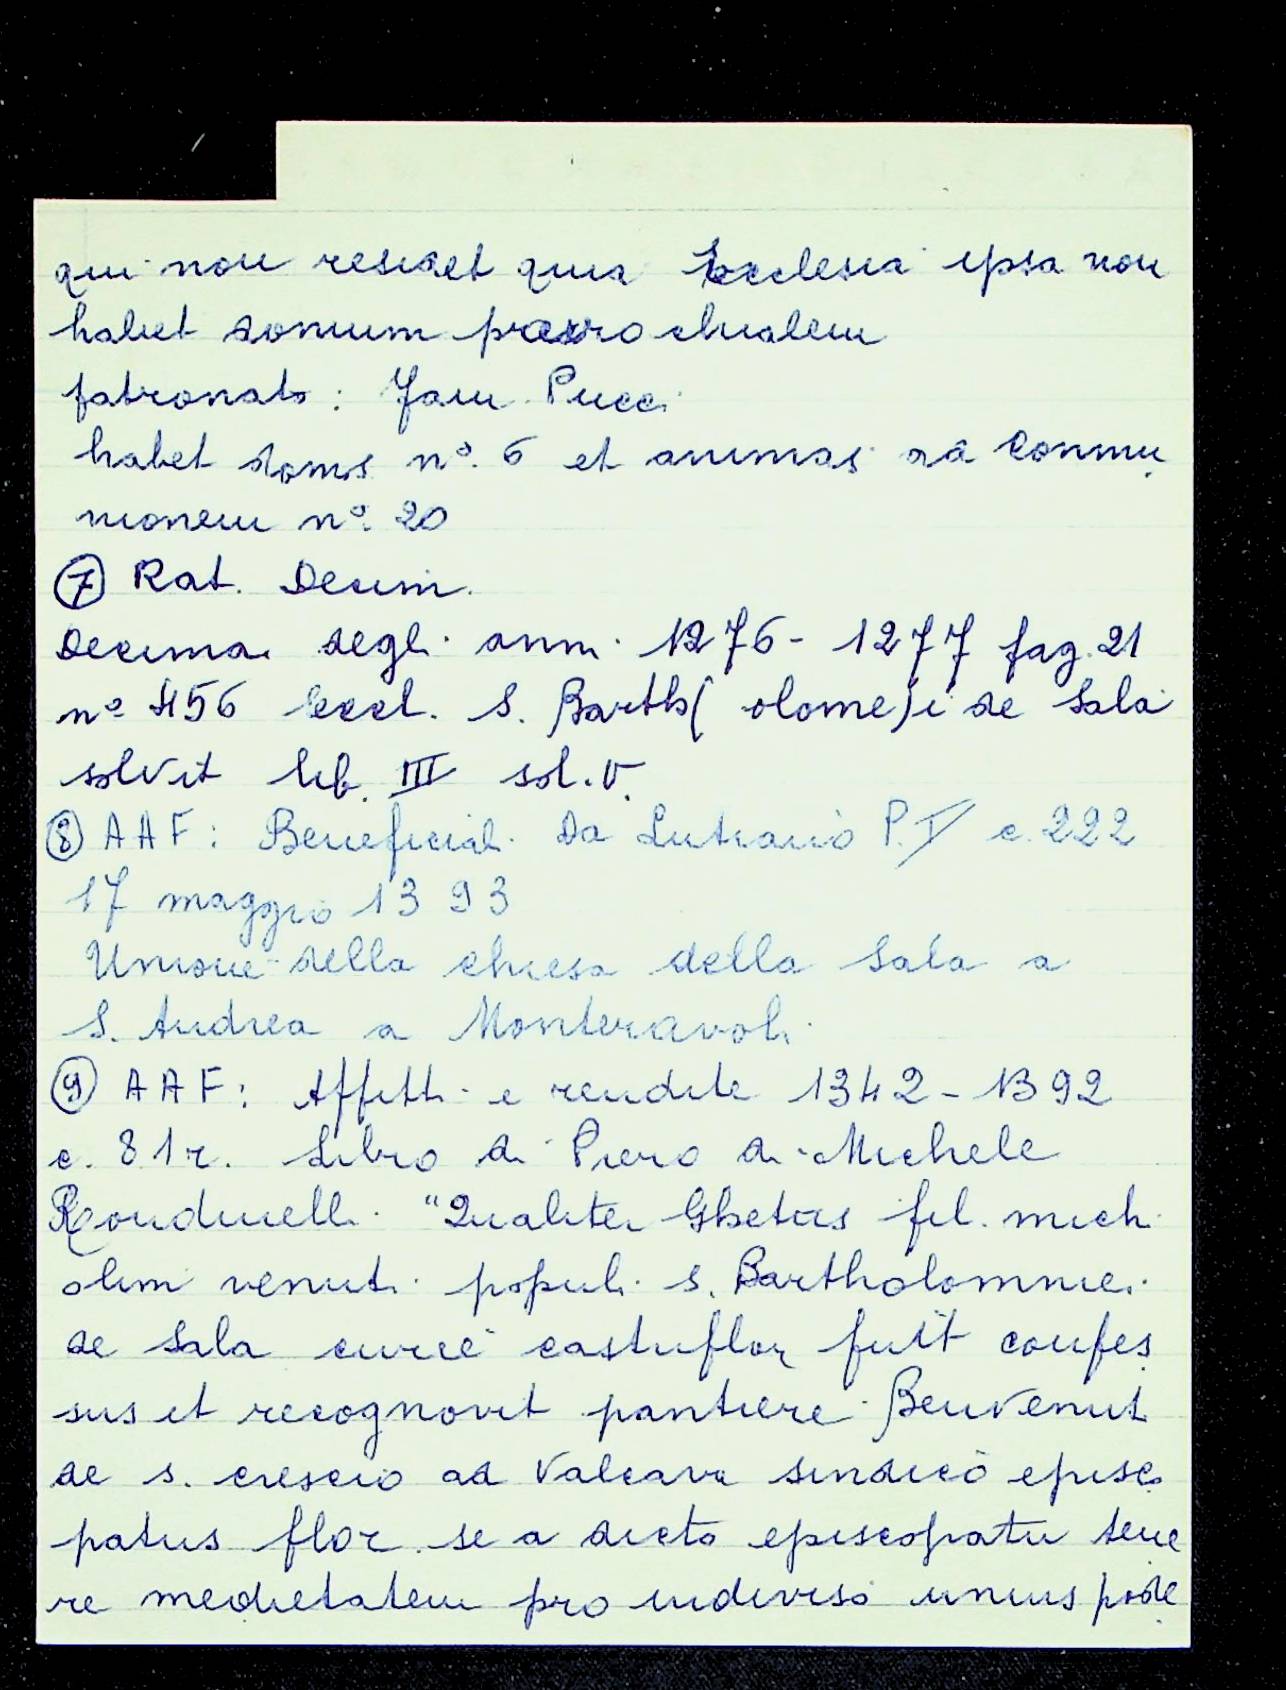 qui non residet quia Ecclesia ipsa non
habet domum parrochialem
patronato: Fam. Pucci
habet domos nº. 6 et animas ad Commu
nionem nº. 20
⑦ Rat. Decim.
Decima degli anni 1276-1277 pag. 21
nº 456 Eccl. S. Bartho(olome)i de Sala
solvit lib. III sol. V.
⑧ AAF: Beneficiali Da Lutiano P. I c. 222
17 maggio 1393
Unione della chiesa della Sala a
S. Andrea a Monteravoli
⑨ AAF: Affitti e rendite 1342-1392
c. 81r. Libro di Piero di Michele
Rondinelli "Qualiter Ghetus fil. mich
olim venuti populi s. Bartholommei
de Sala curie castriflor fuit confes
sus et recognovit Benvenut
de s. crescio ad Valcava sindico episco
patus flor. se a dicto episcopatu tene
re medietatem pro indiviso unius pode